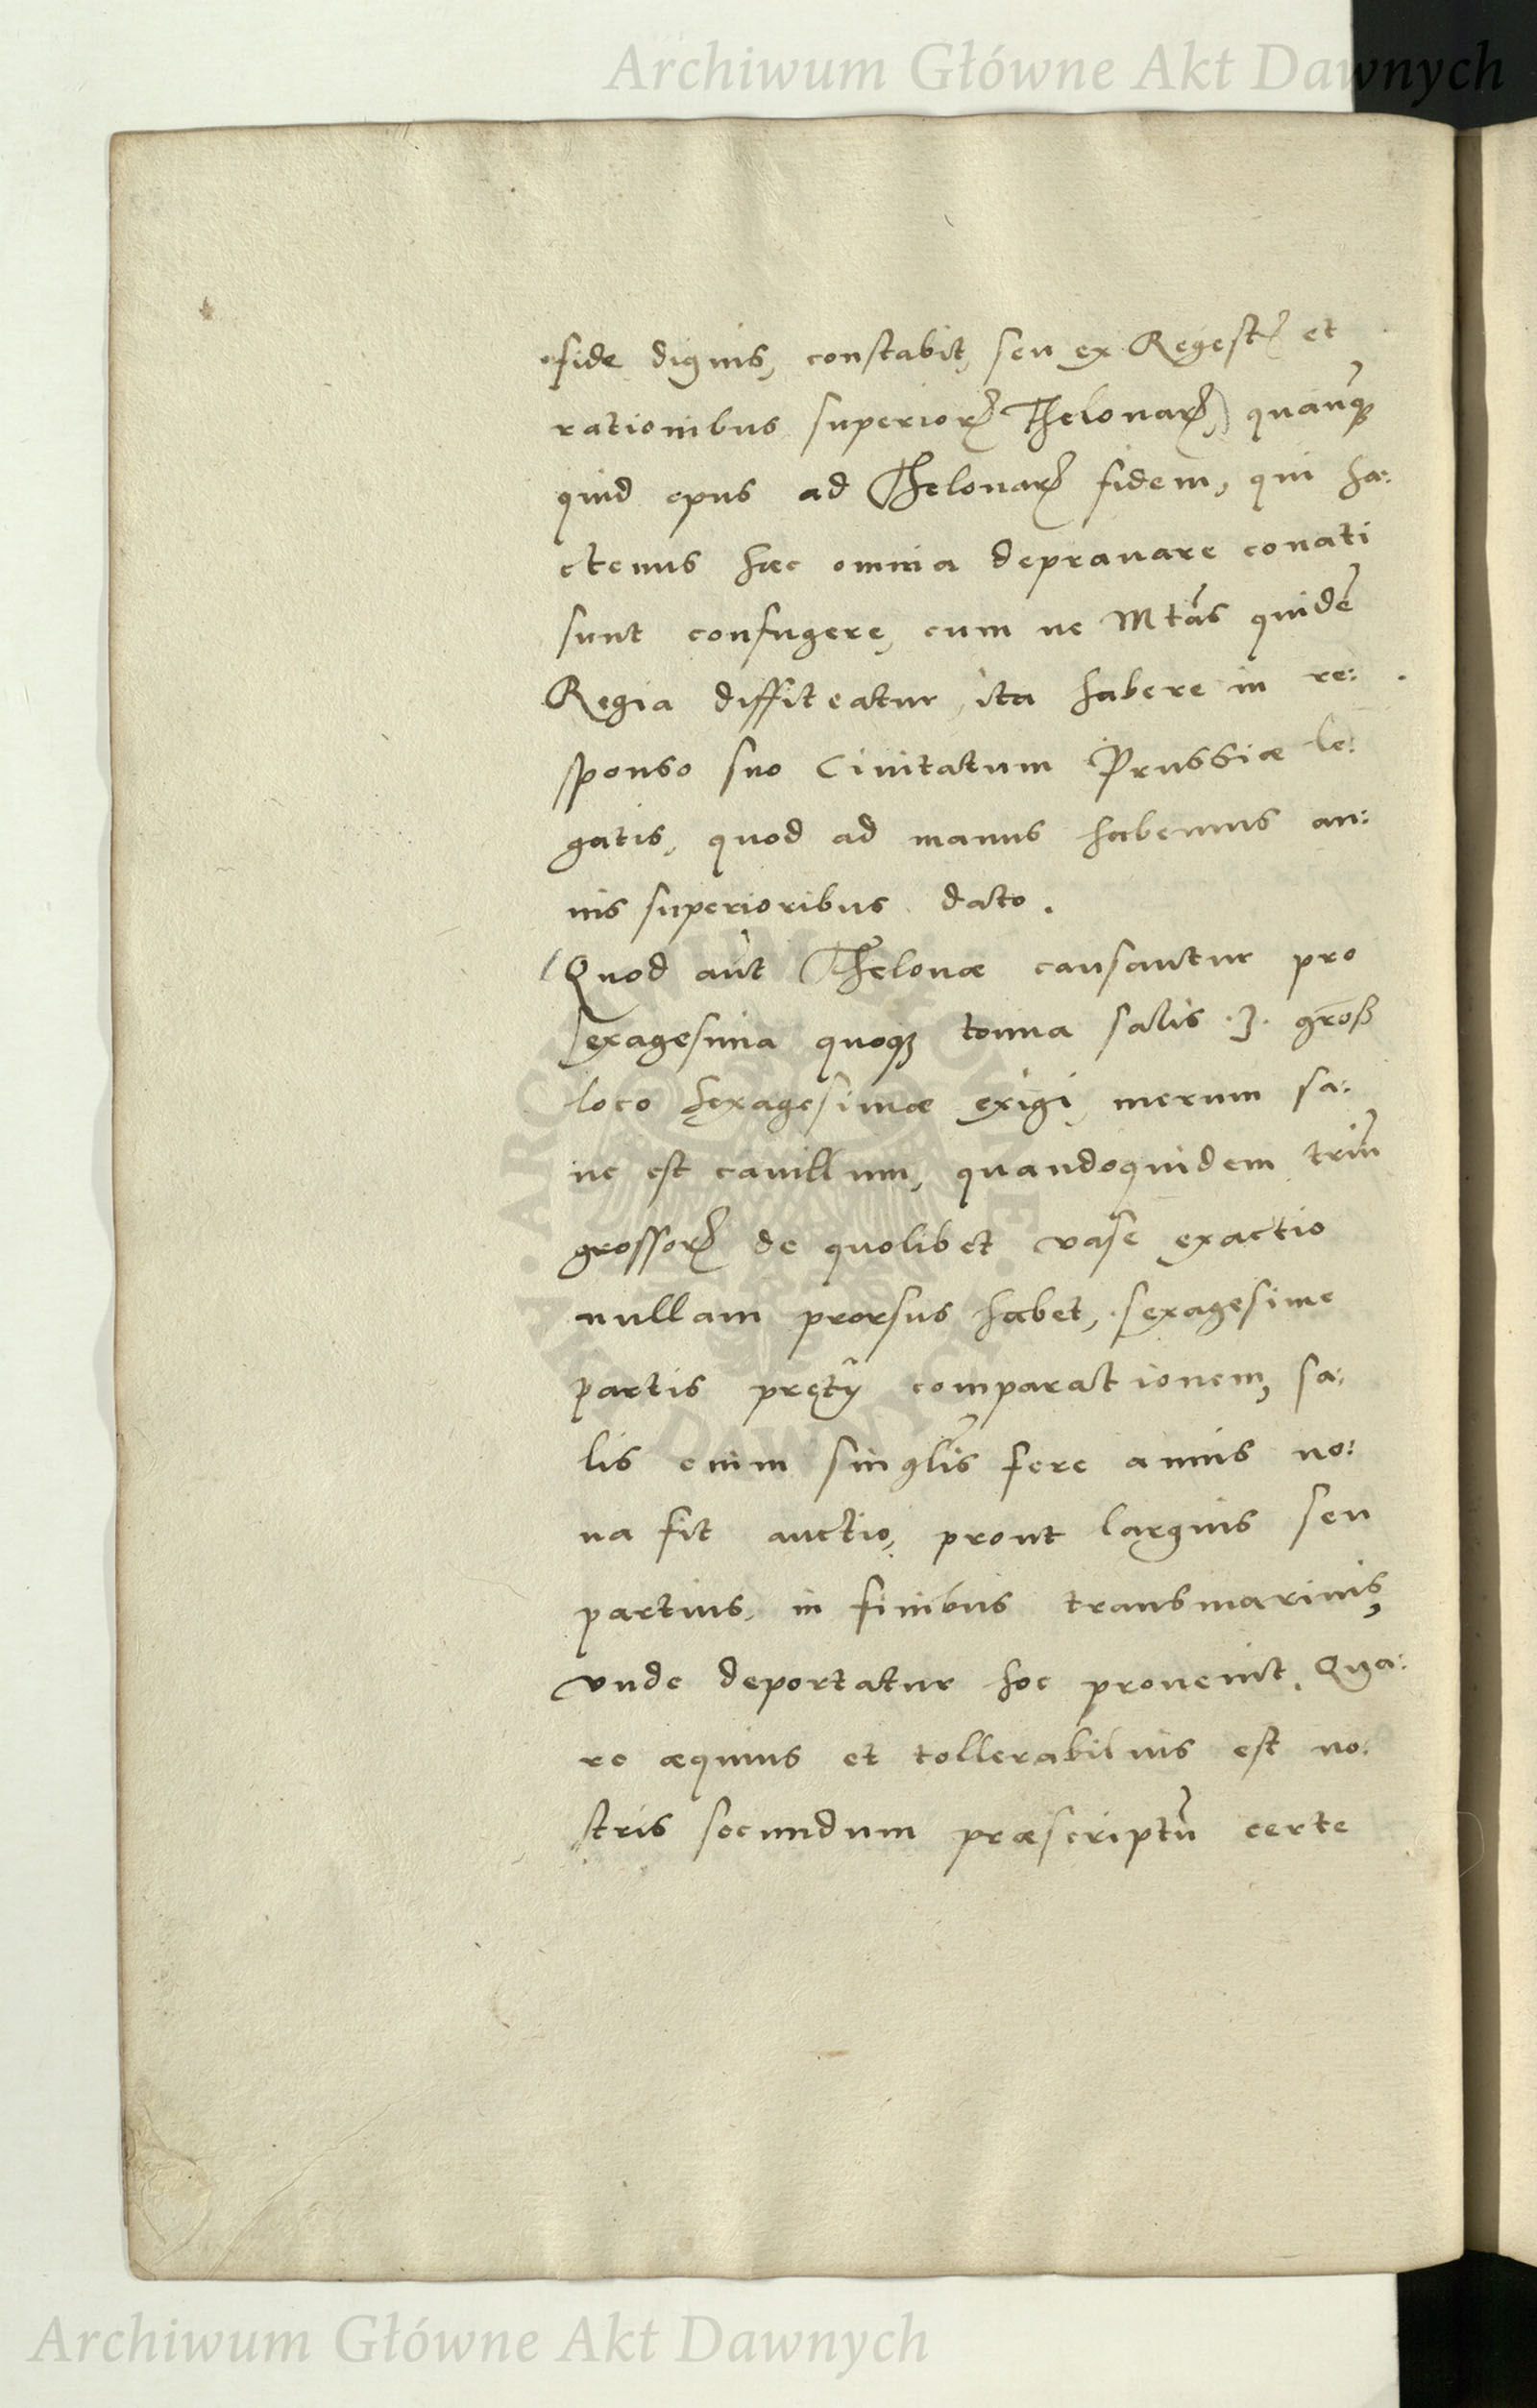 Archiwum Główne Akt Dawnych
fide dignis, constabit, seu ex Regestꝝ et
rationibus superiorꝝ Thelonarꝝ,) quanq̃
quid opus ad Thelonarꝝ fidem, qui ha:
ctenus hæc omnia deprauare conati
sunt confugere, cum ne Mtãs quidẽ
Regia diffiteatur, ita habere in re:
sponso suo Ciuitatum Prussiæ le:
gatis, quod ad manus habemus an:
nis superioribus dato.
Quod aũt Thelonæ causantur pro
sexagesima quoqꝫ tonna salis .3. groß
loco hexagesimæ exigi, merum sa:
ne est cauillum, quandoquidem triũ
grossorꝝ de quolibet vase exactio
nullam prorsus habet, sexagesime
partis prętÿ comparationem, sa:
lis enim singl̃is fere annis no:
ua fit auctio, prout largius seu
partius, in finibus transmarinis,
vnde deportatur hoc prouenit. Qua:
re æquius et tollerabilius est no:
stris secundum præscriptũ certe
ARCHIWUM GŁÓWNE
AKT DAWNYCH
Archiwum Główne Akt Dawnych